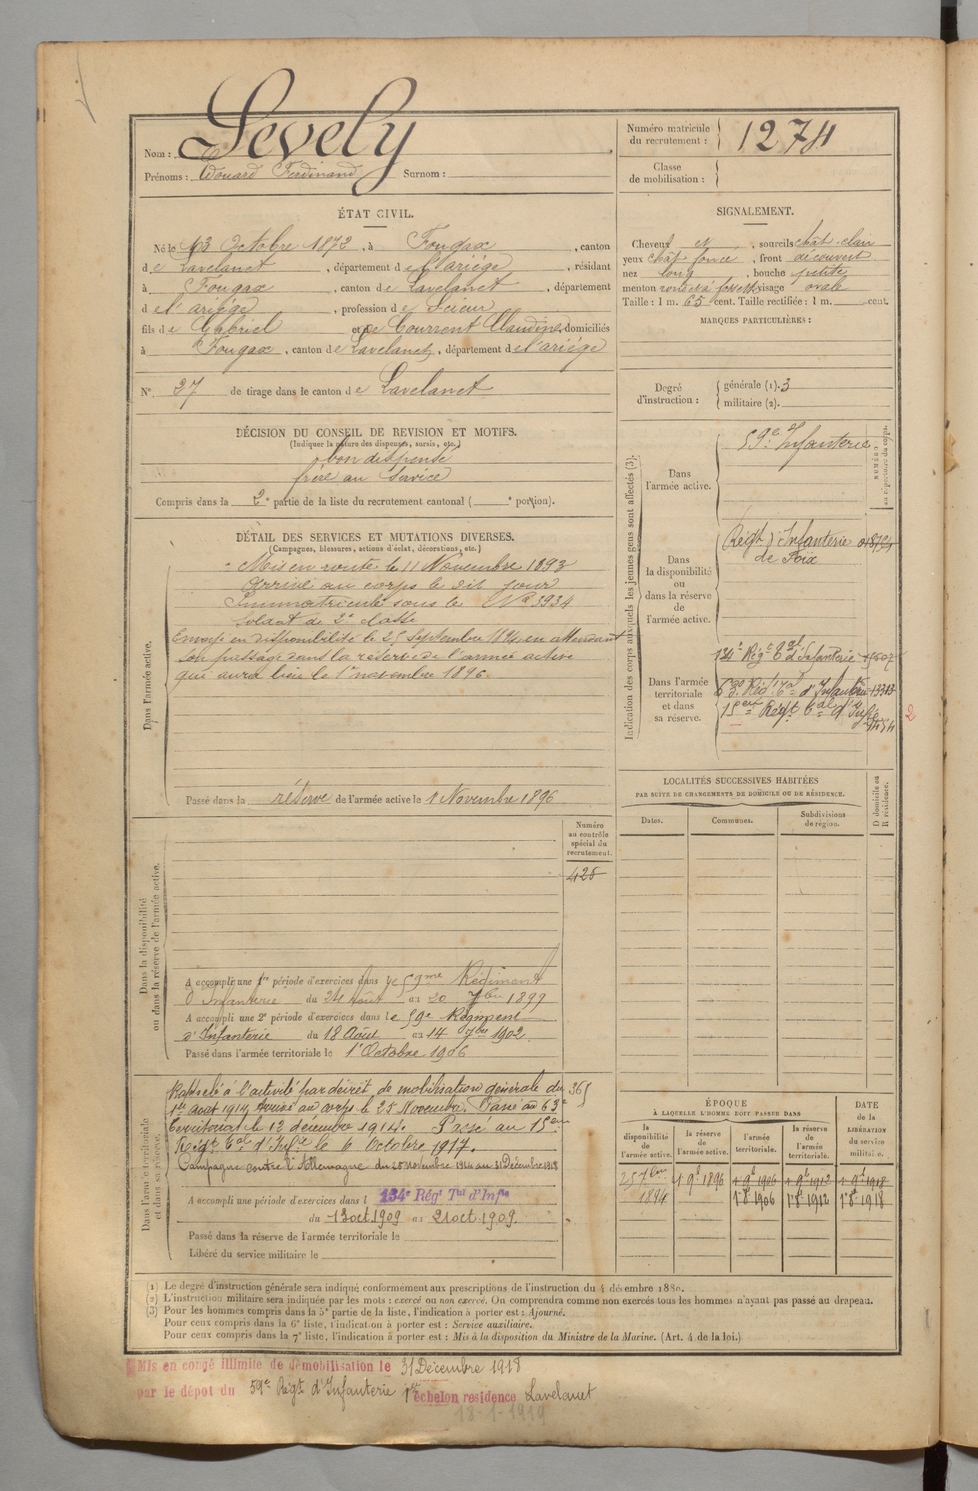 Nom : Levely
Prénoms : Edouard Ferdinand Surnom :
Numéro matricule du recrutement : 1274
Classe de mobilisation :
ÉTAT CIVIL.
Né le 13 Octobre 1872, à Fougax, canton
de Lavelanet, département de l'ariège, résidant
à Fougax, canton de Lavelanet, département
de l'ariège, profession de Scieur
fils de Gabriel et de Courrent Claudine, domiciliés
à Fougax, canton de Lavelanet, département de l'ariège
N° 37 de tirage dans le canton de Lavelanet
SIGNALEMENT.
Cheveux et, sourcils chât. clair
yeux chât. foncé, front découvert
nez long, bouche petite
menton rond à fossette visage ovale
Taille : 1 m. 65 cent. Taille rectifiée : 1 m. cent.
MARQUES PARTICULIÈRES :
Degré d'instruction : générale (1). 3
militaire (2).
DÉCISION DU CONSEIL DE REVISION ET MOTIFS.
(Indiquer la nature des dispenses, sursis, etc.)
bon dispensé
frère au service
Compris dans la 2e partie de la liste du recrutement cantonal ( e portion).
DÉTAIL DES SERVICES ET MUTATIONS DIVERSES.
(Campagnes, blessures, actions d'éclat, décorations, etc.)
Dans l'armée active.
Mis en route le 11 Novembre 1893
Arrivé au corps le dit jour
Immatriculé sous le No 3934
Soldat de 2e classe
Envoyé en disponibilité le 25 septembre 1894 en attendant
son passage dans la réserve de l'armée active
qui aura lieu le 1er novembre 1896.
Passé dans la réserve de l'armée active le 1 Novembre 1896
Indication des corps auxquels les jeunes gens sont affectés (3).
NUMÉRO au répertoire du corps.
Dans l'armée active.
59e Infanterie
Dans la disponibilité ou dans la réserve de l'armée active.
Régt d'Infanterie
de Foix
Dans l'armée territoriale et dans sa réserve.
134e Régt Tal d'Infanterie
63e Régt Tal d'Infanterie
15eme Régt Tal d'Infie
2
LOCALITÉS SUCCESSIVES HABITÉES
PAR SUITE DE CHANGEMENTS DE DOMICILE OU DE RÉSIDENCE.
Dates.
Communes.
Subdivisions de région.
D domicile ou R résidence.
Dans la disponibilité ou dans la réserve de l'armée active.
Numéro au contrôle spécial du recrutement.
425
A accompli une 1re période d'exercices dans le 59me Régiment
d'Infanterie du 24 Août au 20 7bre 1899
A accompli une 2e période d'exercices dans le 59e Régiment
d'Infanterie du 18 Août au 14 7bre 1902.
Passé dans l'armée territoriale le 1er Octobre 1906
Dans l'armée territoriale et dans sa réserve.
Rappelé à l'activité par décret de mobilisation générale du 365
1er août 1914 Arrivé au corps le 25 Novembre. Passé au 63e
Territorial le 12 décembre 1914. Passé au 15eme
Régt Tal d'Infie le 6 Octobre 1917.
Campagne contre l'Allemagne du 25 novembre 1914 au 31 Décembre 1918
A accompli une période d'exercices dans l 134e Régt Tal d'Infie
du 13 oct. 1909 au 21 oct. 1909.
Passé dans la réserve de l'armée territoriale le
Libéré du service militaire le
ÉPOQUE
À LAQUELLE L'HOMME DOIT PASSER DANS
la disponibilité de l'armée active.
la réserve de l'armée active.
l'armée territoriale.
la réserve de l'armée territoriale.
DATE de la LIBÉRATION du service militaire.
25 7bre 1894
1 9b 1896
1 9b 1906
1 9b 1912
1 9b 1918
1r 8b 1906
1r 8b 1912
1r 8b 1918
(1) Le degré d'instruction générale sera indiqué conformément aux prescriptions de l'instruction du 4 décembre 1889.
(2) L'instruction militaire sera indiquée par les mots : exercé ou non exercé. On comprendra comme non exercés tous les hommes n'ayant pas passé au drapeau.
(3) Pour les hommes compris dans la 5e partie de la liste, l'indication à porter est : Ajourné.
Pour ceux compris dans la 6e liste, l'indication à porter est : Service auxiliaire.
Pour ceux compris dans la 7e liste, l'indication à porter est : Mis à la disposition du Ministre de la Marine. (Art. 4 de la loi.)
Mis en congé illimité de démobilisation le 31 Décembre 1918
par le dépot du 59e Régt d'Infanterie 1er échelon residence Lavelanet
18-1-1919